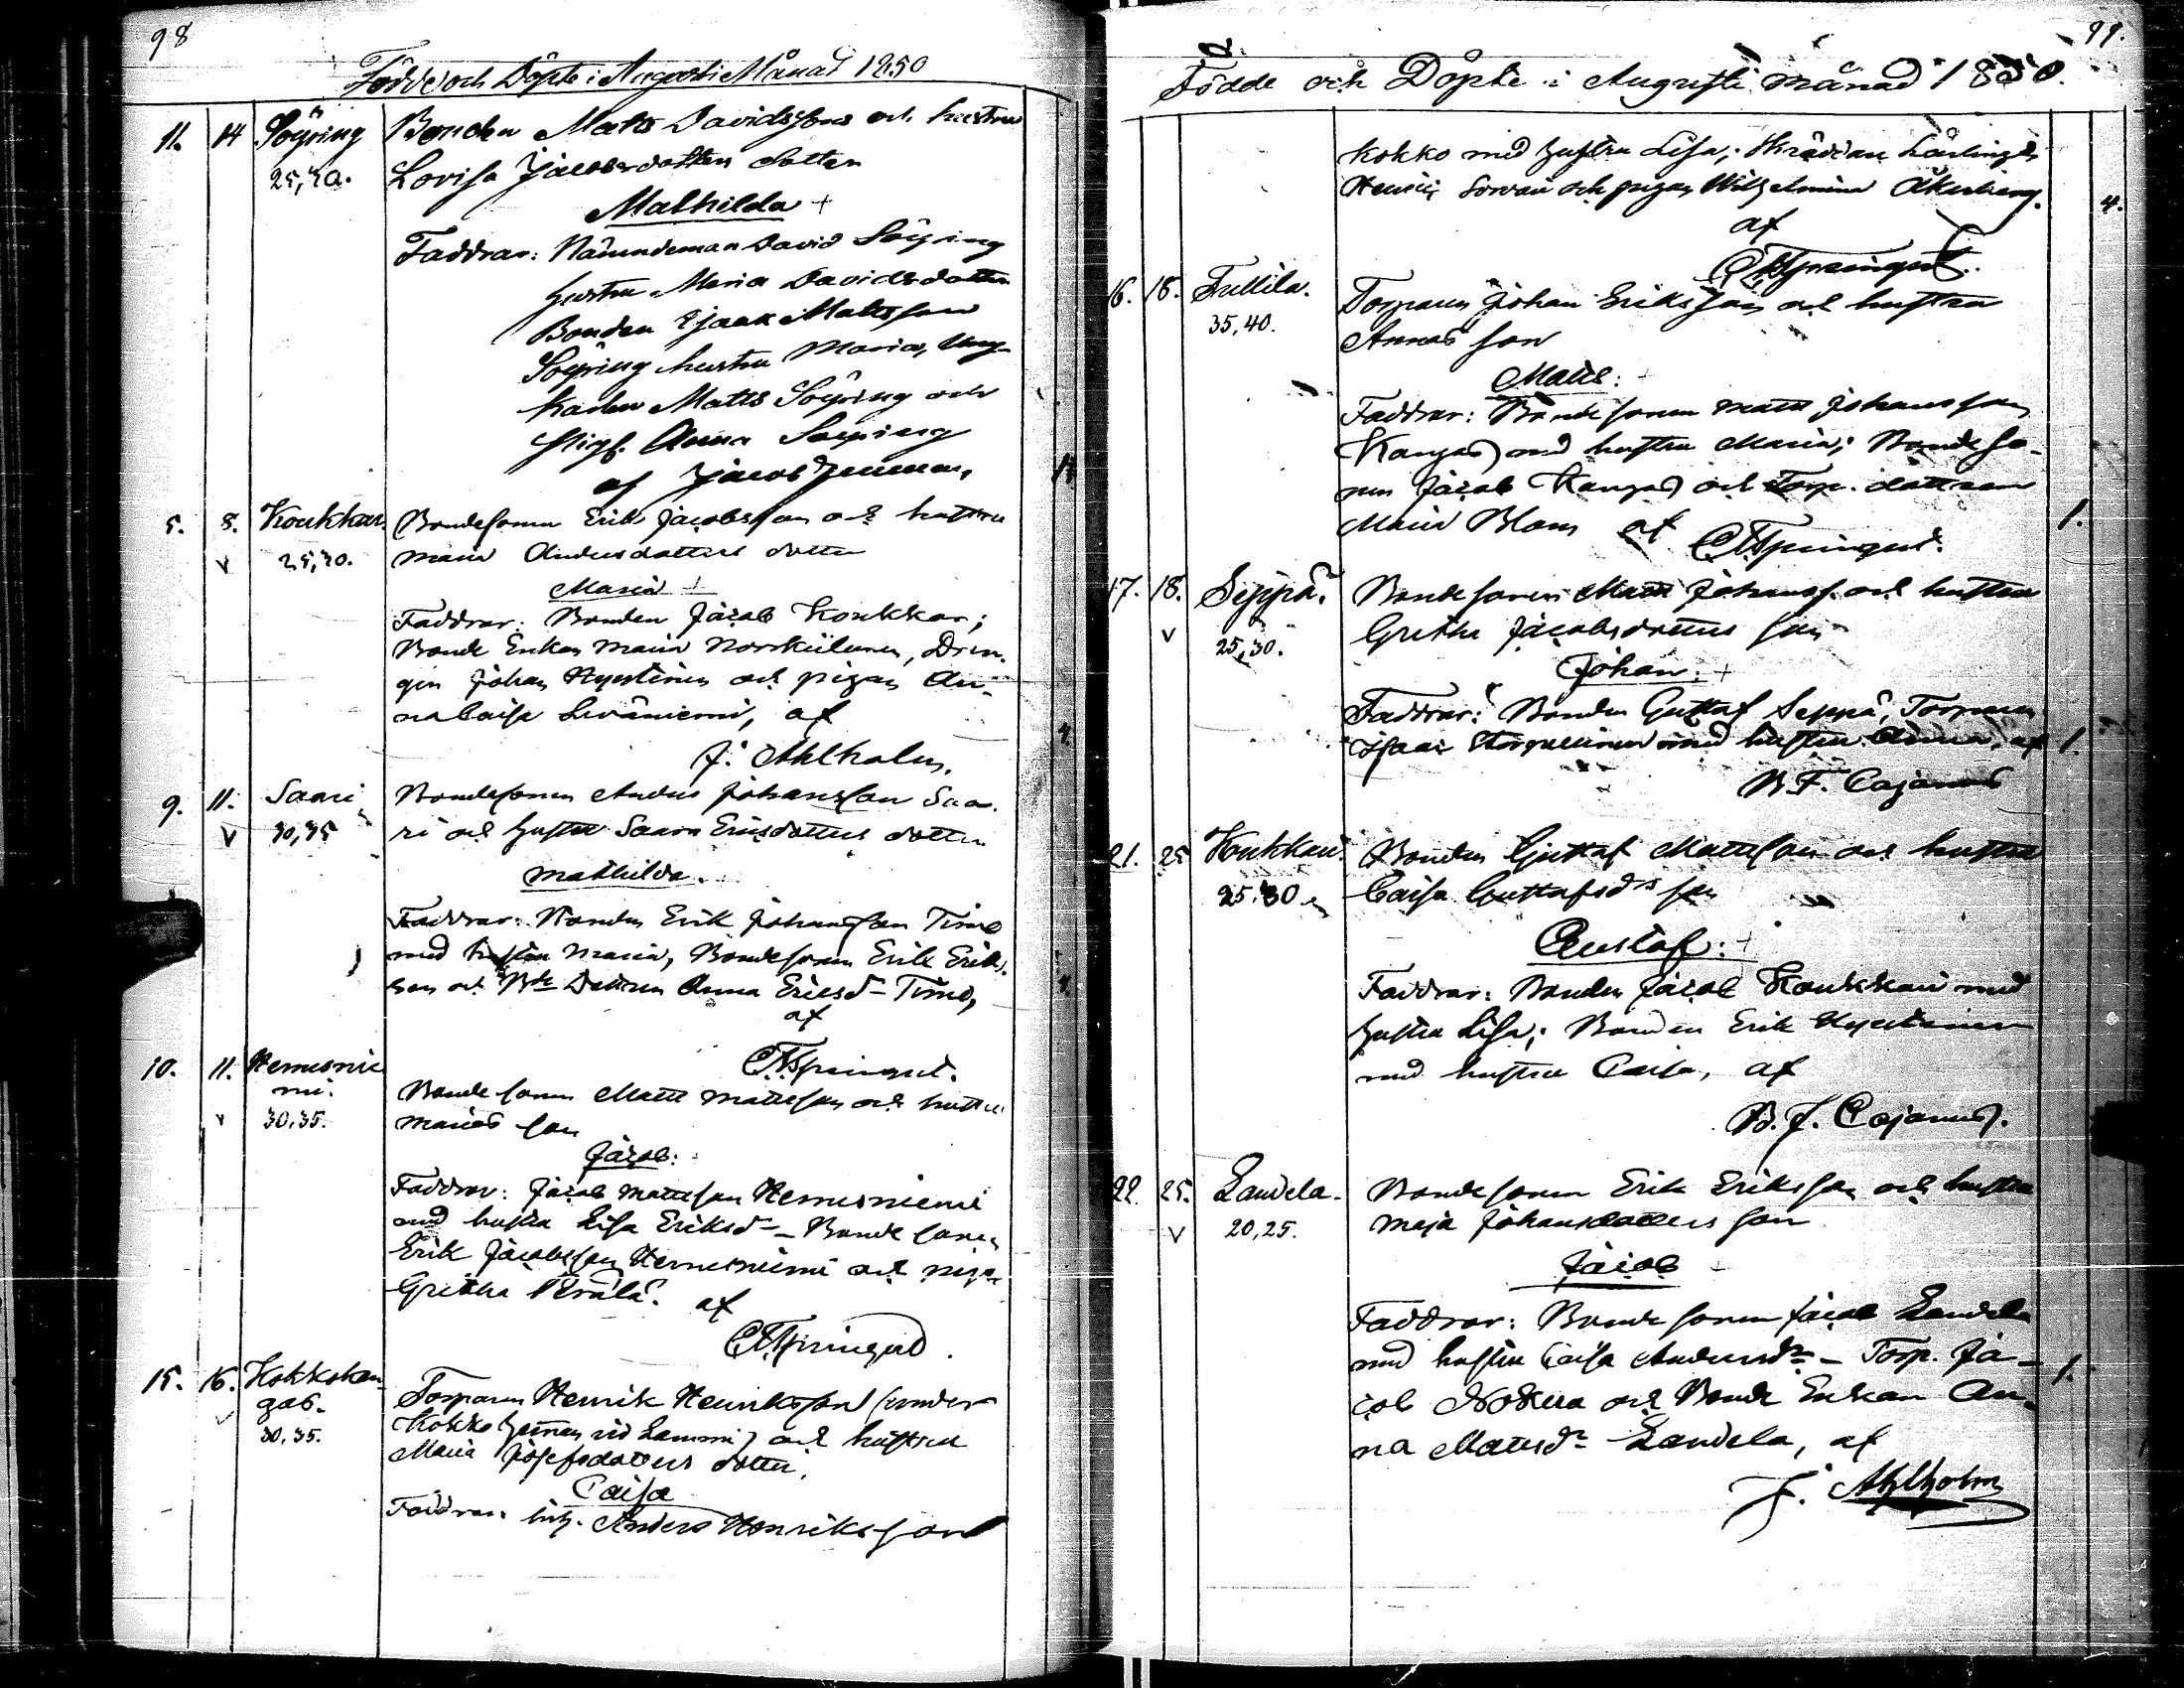 98
Födde och Döpte i Augusti Månad 1850
11. 14 Söyring Bonden Matts Davidsson och hustru
25,30. Lovisa Jacobsdotters dotter
Mathilda +
Faddrar: Nämndeman David Söyring
hustru Maria Davidsdotter
Bonden Isaak Mattsson
Söyring hustru Maria, Ung-
karlen Matts Söyring och
Anna Söyring
af Jacob
5. 8. Koukkari Bondesonen Erik Jacobsson och hustru
v 25,30. Maria Andersdotters dotter
Maria +
Faddrar: Bonden Jacob Koukkari;
Bonde Enkan Maria, Dren-
gen Johan och pigan An-
na Caisa Leväniemi, af
J. Ahlholm.
9. 11. Saari Bondesonen Anders Johansson Saa-
v 30,35 ri och hustru Saara Ericsdotters dotter
Mathilda.
Faddrar: Bonden Erik Johansson Timo
med hustru Maria, Bondesonen Erik Eriks-
son och Bde Dottren Anna Ericsdr Timo,
af
10. 11. Nemesnie
mi. Bondesonen Matts Mattsson och hustru
v 30,35. Marias son
Jacob:
Faddrar: Jacob Mattsson Nemesniemi
med hustru Lisa Eriksdr – Bondesonen
Erik Jacobsson Nemesniemi och pigan
Gretha Perälä. af
15. 16. Kokkokan-
gas. Torparen Henrik Henriksson (under
30,35. Kokko hemman vid Lammi) och hustru
Maria Josefsdotters dotter,
Caisa
Faddrar: Anders Henriksson
99.
Födde och Döpte i Augusti månad 1850.
Kokko med hustru Lisa; Skräddare Lärlingen
Henric och pigan Wilhelmina Åkerberg. 4.
af
16. 18. Tullila. Torparen Johan Eriksson och hustru
35,40. Annas son
Matts:
Faddrar: Bondesonen Matts Johansson
Kangas med hustru Maria; Bondeso-
nen Jacob Kangas och Torp. dottren
Maria Blom af 1.
17. 18. Seppä. Bondesonen Matts Johanss. och hustru
v 25,30. Gretha Jacobsdotters son
Johan: +
Faddrar: Bonden Gustaf Seppä, Torparen
Isaac med hustru Anna, af 1.
B. F. Cajanus
21. 25 Koukkari Bonden Gustaf Mattsson och hustru
25.30 Caisa Gustafsdrs son
Gustaf: +
Faddrar: Bonden Jacob Koukkari med
hustru Lisa; Bonden Erik
med hustru Caisa, af
B. F. Cajanus.
22. 25. Landela. Bondesonen Erik Eriksson och hustru
v 20,25. Maja Johansdotters son
Jacob
Faddrar: Bondesonen Jacob Landela
med hustru Caisa Andersdr – Torp. Ja- 1.
cob och Bonde Enkan An-
na Mattsdr Landela, af
J. Ahlholm